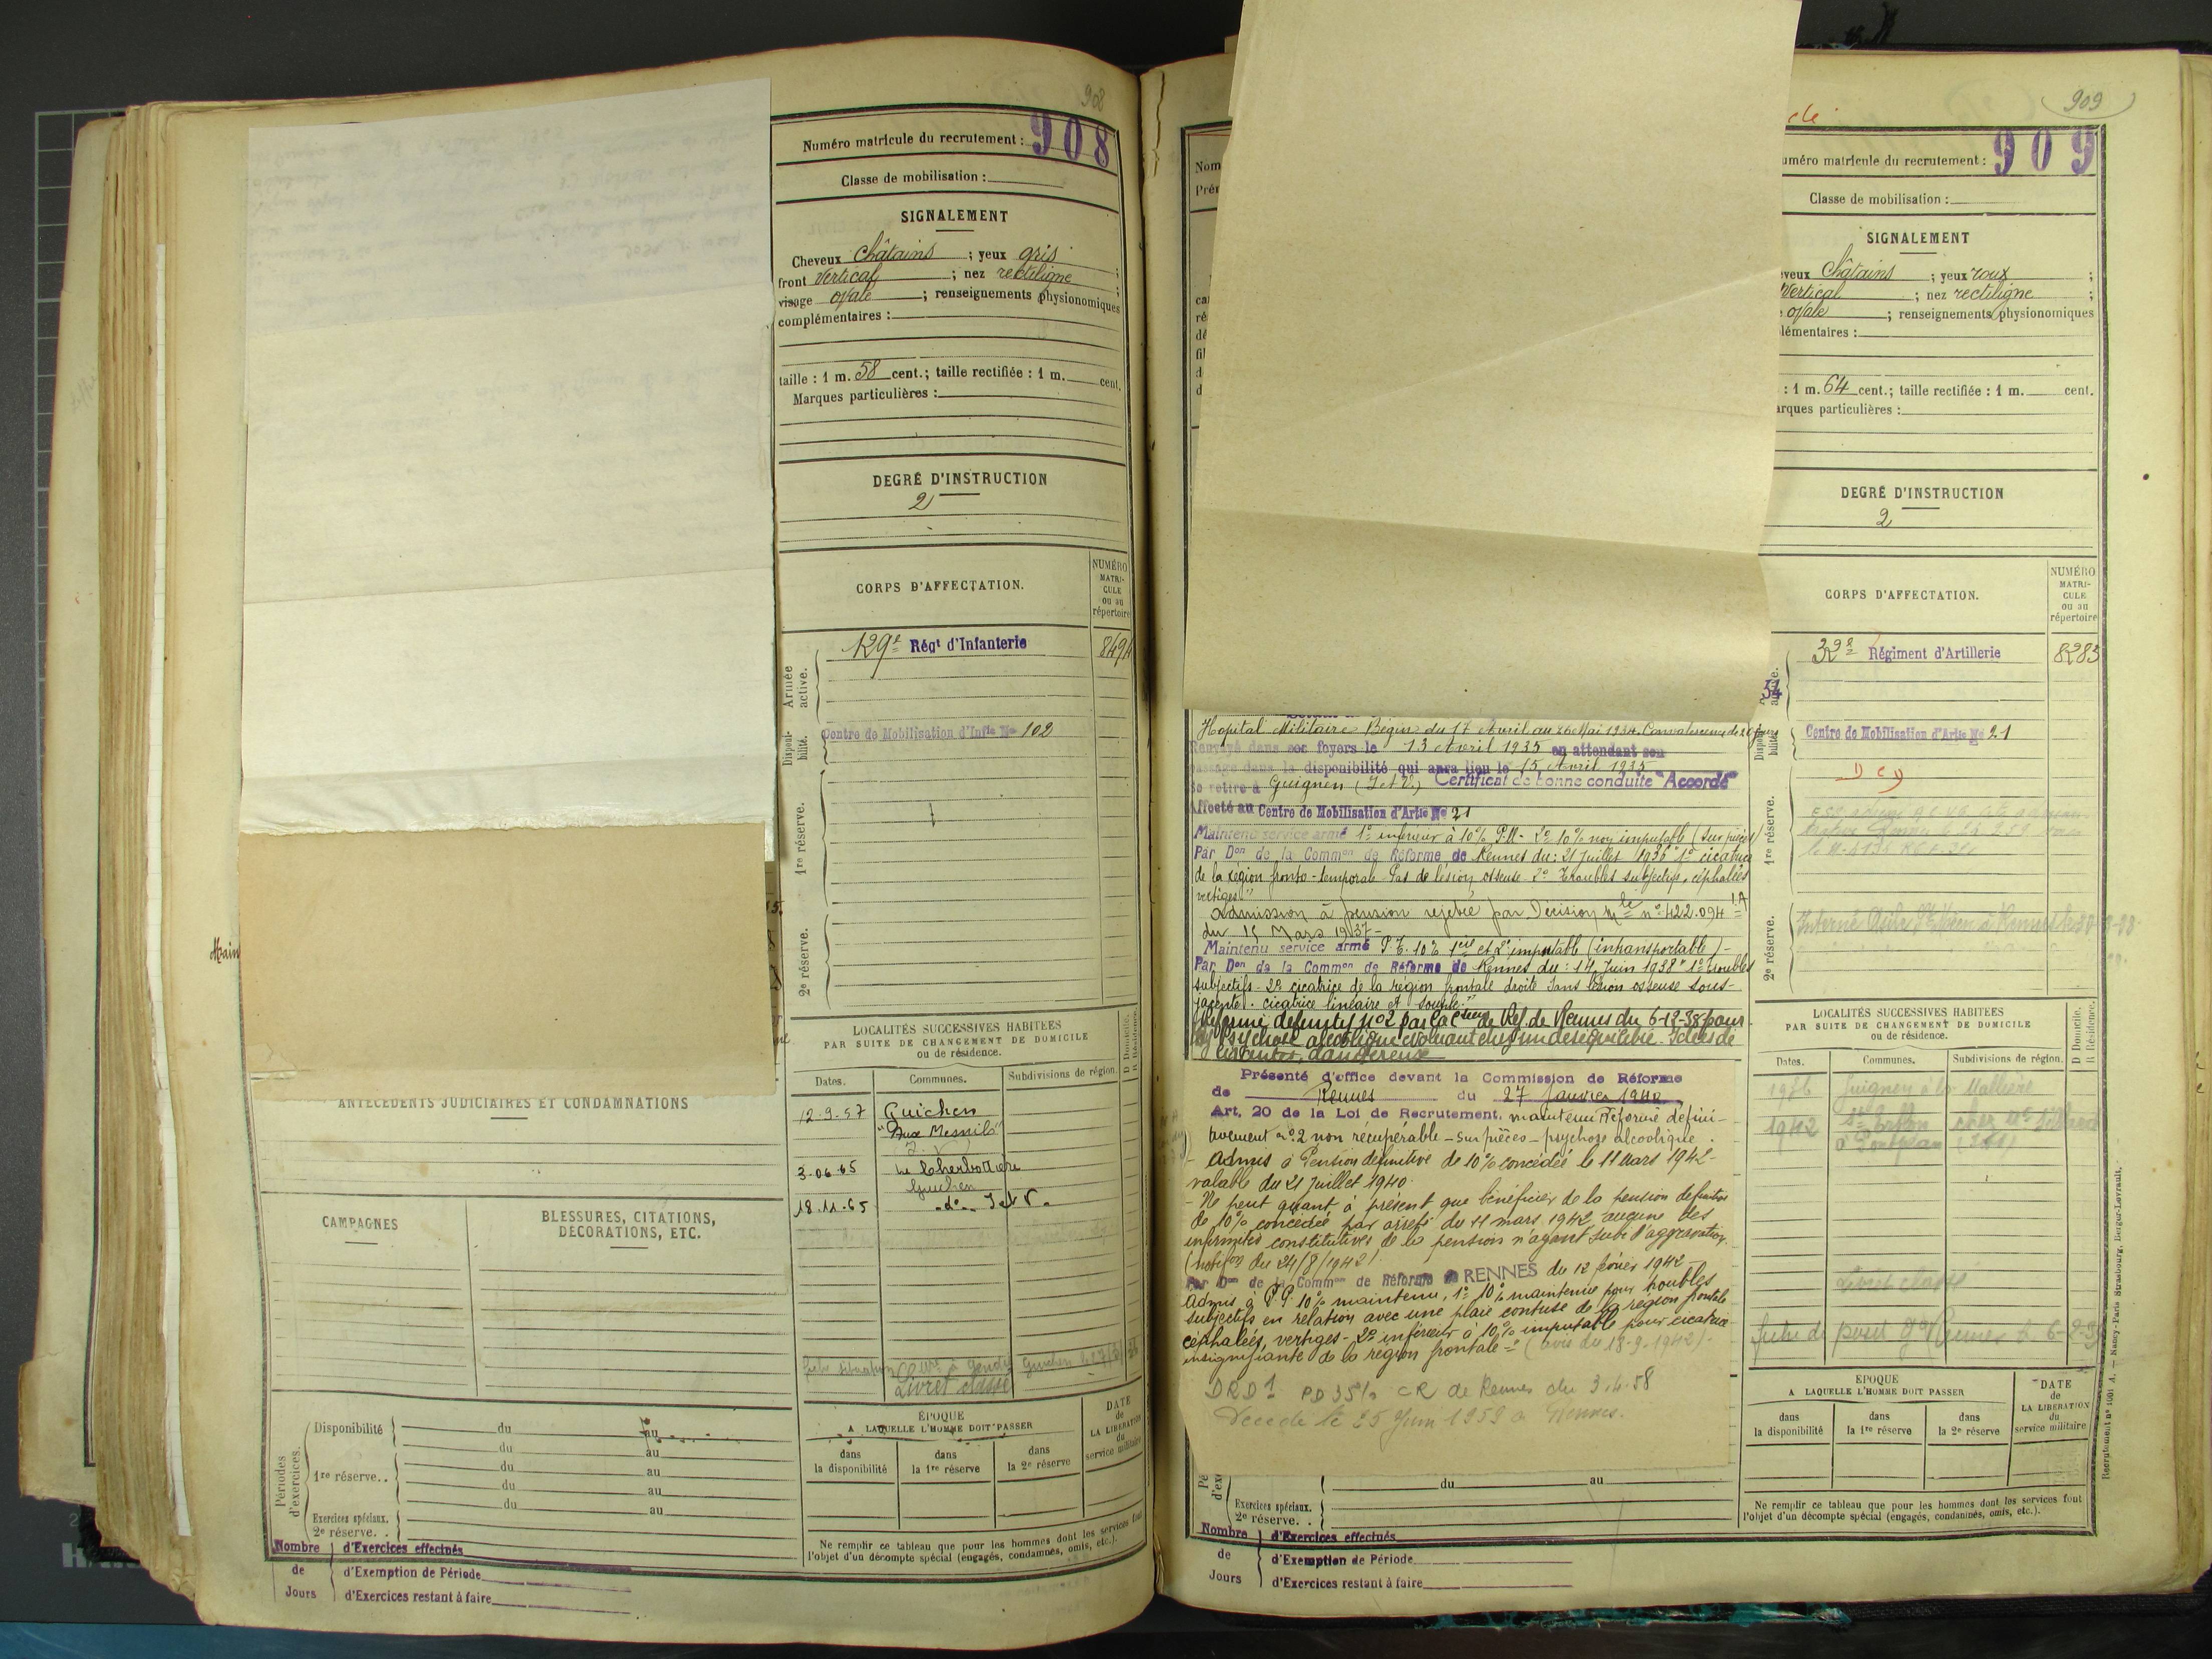 908
Numéro matricule du recrutement : 908
Classe de mobilisation :
SIGNALEMENT
Cheveux châtains ; yeux gris ;
front vertical ; nez rectiligne ;
visage ovale ; renseignements physionomiques
complémentaires :
taille : 1 m. 58 cent.; taille rectifiée : 1 m. cent.
Marques particulières :
DEGRÉ D'INSTRUCTION
2
CORPS D'AFFECTATION.
NUMÉRO
MATRI-
CULE
ou au
répertoire
Armée
active.
129e Régt d'Infanterie
Disponi-
bilité.
Centre de Mobilisation d'Infie No 102
1re réserve.
2e réserve.
Main
LOCALITÉS SUCCESSIVES HABITÉES
PAR SUITE DE CHANGEMENT DE DOMICILE
ou de résidence.
D Domicile.
R Résidence.
Dates. Communes. Subdivisions de région.
12.9.57 Guichen
3.06.65
Guichen
18.11.65 -do- I et V.
Livret classé
ANTÉCÉDENTS JUDICIAIRES ET CONDAMNATIONS
CAMPAGNES
BLESSURES, CITATIONS,
DÉCORATIONS, ETC.
Périodes
d'exercices.
Disponibilité du au
du au
1re réserve.. du au
du au
du au
Exercices spéciaux.
2e réserve. .
Nombre d'Exercices effectués
de d'Exemption de Période
Jours d'Exercices restant à faire
ÉPOQUE
A LAQUELLE L'HOMME DOIT PASSER
dans
la disponibilité
dans
la 1re réserve
dans
la 2e réserve
DATE
de
LA LIBÉRATION
du
service militaire
Ne remplir ce tableau que pour les hommes dont les services font
l'objet d'un décompte spécial (engagés, condamnés, omis, etc.).
909
Nom
Prén
uméro matricule du recrutement : 909
Classe de mobilisation :
SIGNALEMENT
eveux Châtains ; yeux roux ;
Vertical ; nez rectiligne ;
ovale ; renseignements physionomiques
lémentaires :
: 1 m. 64 cent.; taille rectifiée : 1 m. cent.
arques particulières :
DEGRÉ D'INSTRUCTION
2
CORPS D'AFFECTATION.
NUMÉRO
MATRI-
CULE
ou au
répertoire
32e Régiment d'Artillerie 8283
Centre de Mobilisation d'Artie No 21
DCD
1re réserve.
2e réserve.
Hopital Militaire Bégin du 17 Avril au 26 Mai 1934. Convalescence de
Renvoyé dans ses foyers le 13 Avril 1935 en attendant son
passage dans la disponibilité qui aura lieu le 15 Avril 1935
Se retire à Guignen (I et V.) Certificat de bonne conduite "Accordé"
Affecté au Centre de Mobilisation d'Artie No 21
Maintenu service armé 1° inférieur à 10% P.M. - 2° 10% non imputable (sur pièces)
Par Don de la Common de Réforme de Rennes du : 21 Juillet 1936 "1° cicatrice
de la région fronto-temporale Pas de lésion osseuse 2° Troubles subjectifs, céphalées
vertiges."
Admission à pension rejetée par Décision Mle no 422.094
du 15 Mars 1937 -
Maintenu service armé P.T. 10% 1er et 2° imputable (intransportable) -
Par Don de la Common de Réforme de Rennes du : 14 Juin 1938 " 1° troubles
subjectifs - 2° cicatrice de la région frontale droite sans lésion osseuse sous-
jacente. cicatrice linéaire et souple."
Réformé définitif no 2 par la Cion de Réf. de Rennes du 6-12-38 pour
Psychose alcoolique évoluant chez un déséquilibré. Idées de
dangereuse
Présenté d'office devant la Commission de Réforme
de Rennes du 27 Janvier 1940
Art. 20 de la Loi de Recrutement. maintenu Réformé défini-
tivement no 2 non récupérable - sur pièces - psychose alcoolique.
Admis à Pension définitive de 10% concédée le 11 Mars 1942 -
valable du 21 Juillet 1940.
- Ne peut quant à présent que bénéficier de la pension définitive
de 10% concédée par arrêté du 11 mars 1942, aucune des
infirmités constitutives de la pension n'ayant subi d'aggravation.
(notifon du 24/8/1942)
Par Don de la Common de Réforme de RENNES du 12 février 1942
Admis à P.P. 10% maintenu, 1° 10% maintenu pour troubles
subjectifs en relation avec une plaie contuse de la région frontale
céphalées, vertiges - 2° inférieur à 10% imputable pour cicatrice
insignifiante de la région frontale - (avis du 18-9-1942).
DRD1 PD 35% CR de Rennes du 3.4.58
Décédé le 25 Juin 1959 à Rennes.
LOCALITÉS SUCCESSIVES HABITÉES
PAR SUITE DE CHANGEMENT DE DOMICILE
ou de résidence.
D Domicile.
R Résidence.
Dates. Communes. Subdivisions de région.
1936 Guignen
1942
Livret classé
du au
Exercices spéciaux.
2e réserve. .
Nombre d'Exercices effectués
de d'Exemption de Période
Jours d'Exercices restant à faire
ÉPOQUE
A LAQUELLE L'HOMME DOIT PASSER
dans
la disponibilité
dans
la 1re réserve
dans
la 2e réserve
DATE
de
LA LIBÉRATION
du
service militaire
Ne remplir ce tableau que pour les hommes dont les services font
l'objet d'un décompte spécial (engagés, condamnés, omis, etc.).
Recrutement no 1001 A. — Nancy-Paris Strasbourg, Berger-Levrault.